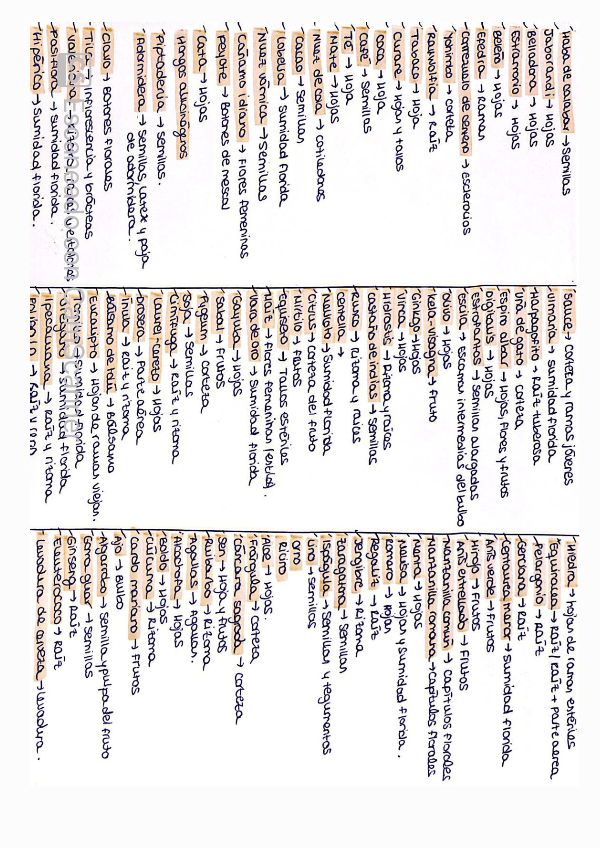 Haba de calabar → Semillas
Jaborandi → Hojas
Belladona → Hojas
Estramonio → Hojas
Beleño → Hojas
Efedra → Ramas
Cornezuelo de centeno → Esclerocios
Yohimbo → corteza
Rauwolfia → Raíz
Tabaco → Hoja
Curare → Hojas y tallos
Coca → Hoja
Café → Semillas
Té → Hoja
Mate → Hojas
Nuez de cola → cotiledones
Cacao → Semillas
Lobelia → Sumidad florida
Nuez vómica → Semillas
Cáñamo indiano → Flores femeninas
Peyote → Botones de mescal
Cata → Hojas
Hongos alucinógenos
Piptadenia → Semillas.
Adormidera → Semillas, latex y paja
de adormidera.
Clavo → Botones florales
Tila → Inflorescencia y brácteas
Valeriana → Rizoma, raíces y estolones
Pasiflora → Sumidad florida.
Hipérico → Sumidad florida.
Sauce → corteza y ramas jóvenes
Ulmaria → Sumidad florida
Harpagofito → Raíz tuberosa
Uña de gato → Corteza
Espino albar → Hojas, flores y frutos
Digital → Hojas
Estrofantos → Semillas alargadas
Escila → Escamas intermedias del bulbo
Olivo → Hojas
Kela-Visnaga → Fruto
Ginkgo → Hojas
Vinca → Hojas
Hidrastis → Rizoma y raíces
Castaño de indias → Semillas
Rusco → Rizoma y raíces
Centella →
Meliloto → Sumidad florida
Citrus → corteza del fruto
Mirtilo → Frutos
Equiseto → Tallos estériles
Maíz → Flores femeninas (estilos).
Vara de oro → Sumidad florida
Gayuba → Hojas
Sabal → Frutos
Pygeum → Corteza
Soja → Semillas
Cimífuga → Raíz y rizoma
Laurel-cerezo → Hojas
Drosera → Parte aérea
Inula → Raíz y rizoma
Bálsamo de tolú → Bálsamo
Eucalipto → Hojas de ramas viejas.
Tomillo → Sumidad florida
→ Sumidad florida
Ipecacuana → Raíz y rizoma
Hiedra → Hojas de ramas estériles
Equinacea → Raíz / Raíz + Parte aerea
Pelargonio → Raíz
Genciana → Raíz
Centaurea menor → Sumidad florida
Anís verde → Frutos
Hinojo → Frutos
Anís estrellado → Frutos
Manzanilla común → Capítulos florales
Manzanilla romana → Capítulos florales
Menta → Hojas
Malva → Hojas y Sumidad florida.
Romero → Hojas
Regaliz → Raíz
Jengibre → Rizoma
Zaragatona → Semillas
Ispágula → Semillas y tegumentos
Lino → Semillas
Olmo
Ricino
Aloe → Hojas.
Frángula → Corteza
Cáscara sagrada → Corteza
Sen → Hoja y frutos
Ruibarbo → Rizoma
Agallas → Agallas.
Alcachofa → Hojas
Boldo → Hojas
Cúrcuma → Rizoma
Cardo mariano → Frutos
Ajo → Bulbo
Algarrobo → Semilla y pulpa del fruto
Goma guar → Semillas
Ginseng → Raíz
Eleuterococo → Raíz
Levadura de cerveza → Levadura.
Escaneado con CamScanner